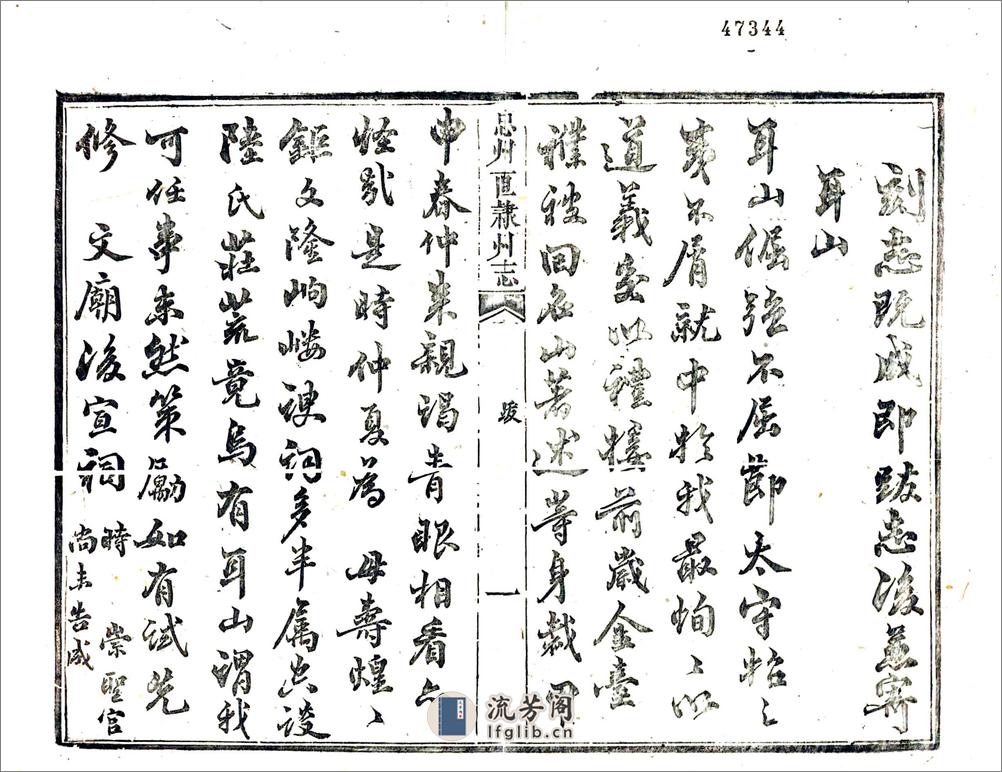 47344
刻志既成即跋志後並寄
耳山
耳山倔強不屈節太守怡〻
夷不屑就中於我最恂〻以
道義交以禮憶前歲金臺
襆被回名山著述等身裁
忠州直隸州志
跋
一
申春仲来親謁青眼相看
怪哉是時仲夏為 母壽煌〻
鉅文隆岣嶁諛詞多半屬空談
陸氏莊荒竟烏有耳山謂我
可任事 然策勵如有試先
修 文廟後宣祠
時 崇聖宮
尚未告成
流芳阁
lfglib.cn